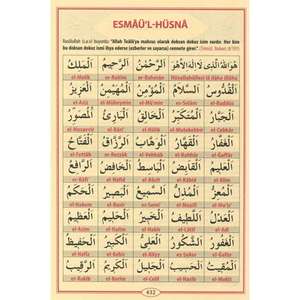 ESMÂÜ'L-HÜSNÂ
Rasûlullah (s.a.v) buyurdu: "Allah Teâlâ'ya mahsus olarak doksan dokuz isim vardır. Her kim
bu doksan dokuz ismi ihya ederse (ezberler ve sayarsa) cennete girer."
هُوَ اللّٰهُ الَّذِي لَا إِلٰهَ إِلَّا هُوَ الرَّحْمٰنُ الرَّحِيمُ الْمَلِكُ
el-Melik er-Rahîm er-Rahmân Hüvallahüllezî lâ ilâhe illâ Hû
الْقُدُّوسُ السَّلَامُ الْمُؤْمِنُ الْمُهَيْمِنُ الْعَزِيزُ
el-Azîz el-Müheymin el-Mü'min es-Selâm el-Kuddûs
الْجَبَّارُ الْمُتَكَبِّرُ الْخَالِقُ الْبَارِئُ الْمُصَوِّرُ
el-Musavvir el-Bâri' el-Hâlik el-Mütekebbir el-Cebbâr
الْغَفَّارُ الْقَهَّارُ الْوَهَّابُ الرَّزَّاقُ الْفَتَّاحُ
el-Fettâh er-Rezzâk el-Vehhâb el-Kahhâr el-Gaffâr
الْعَلِيمُ الْقَابِضُ الْبَاسِطُ الْخَافِضُ الرَّافِعُ
er-Râfi' el-Hâfid el-Bâsit el-Kâbid el-Alîm
الْمُعِزُّ الْمُذِلُّ السَّمِيعُ الْبَصِيرُ الْحَكَمُ
el-Hakem el-Basîr es-Semî' el-Müzill el-Muizz
الْعَدْلُ اللَّطِيفُ الْخَبِيرُ الْحَلِيمُ الْعَظِيمُ
el-Azîm el-Halîm el-Habîr el-Latîf el-Adl
الْغَفُورُ الشَّكُورُ الْعَلِيُّ الْكَبِيرُ الْحَفِيظُ
el-Hafîz el-Kebîr el-Aliyy eş-Şekûr el-Gafûr
الْمُقِيتُ الْحَسِيبُ الْجَلِيلُ الْكَرِيمُ الرَّقِيبُ
er-Rakîb el-Kerîm el-Celîl el-Hasîb el-Mukît
632